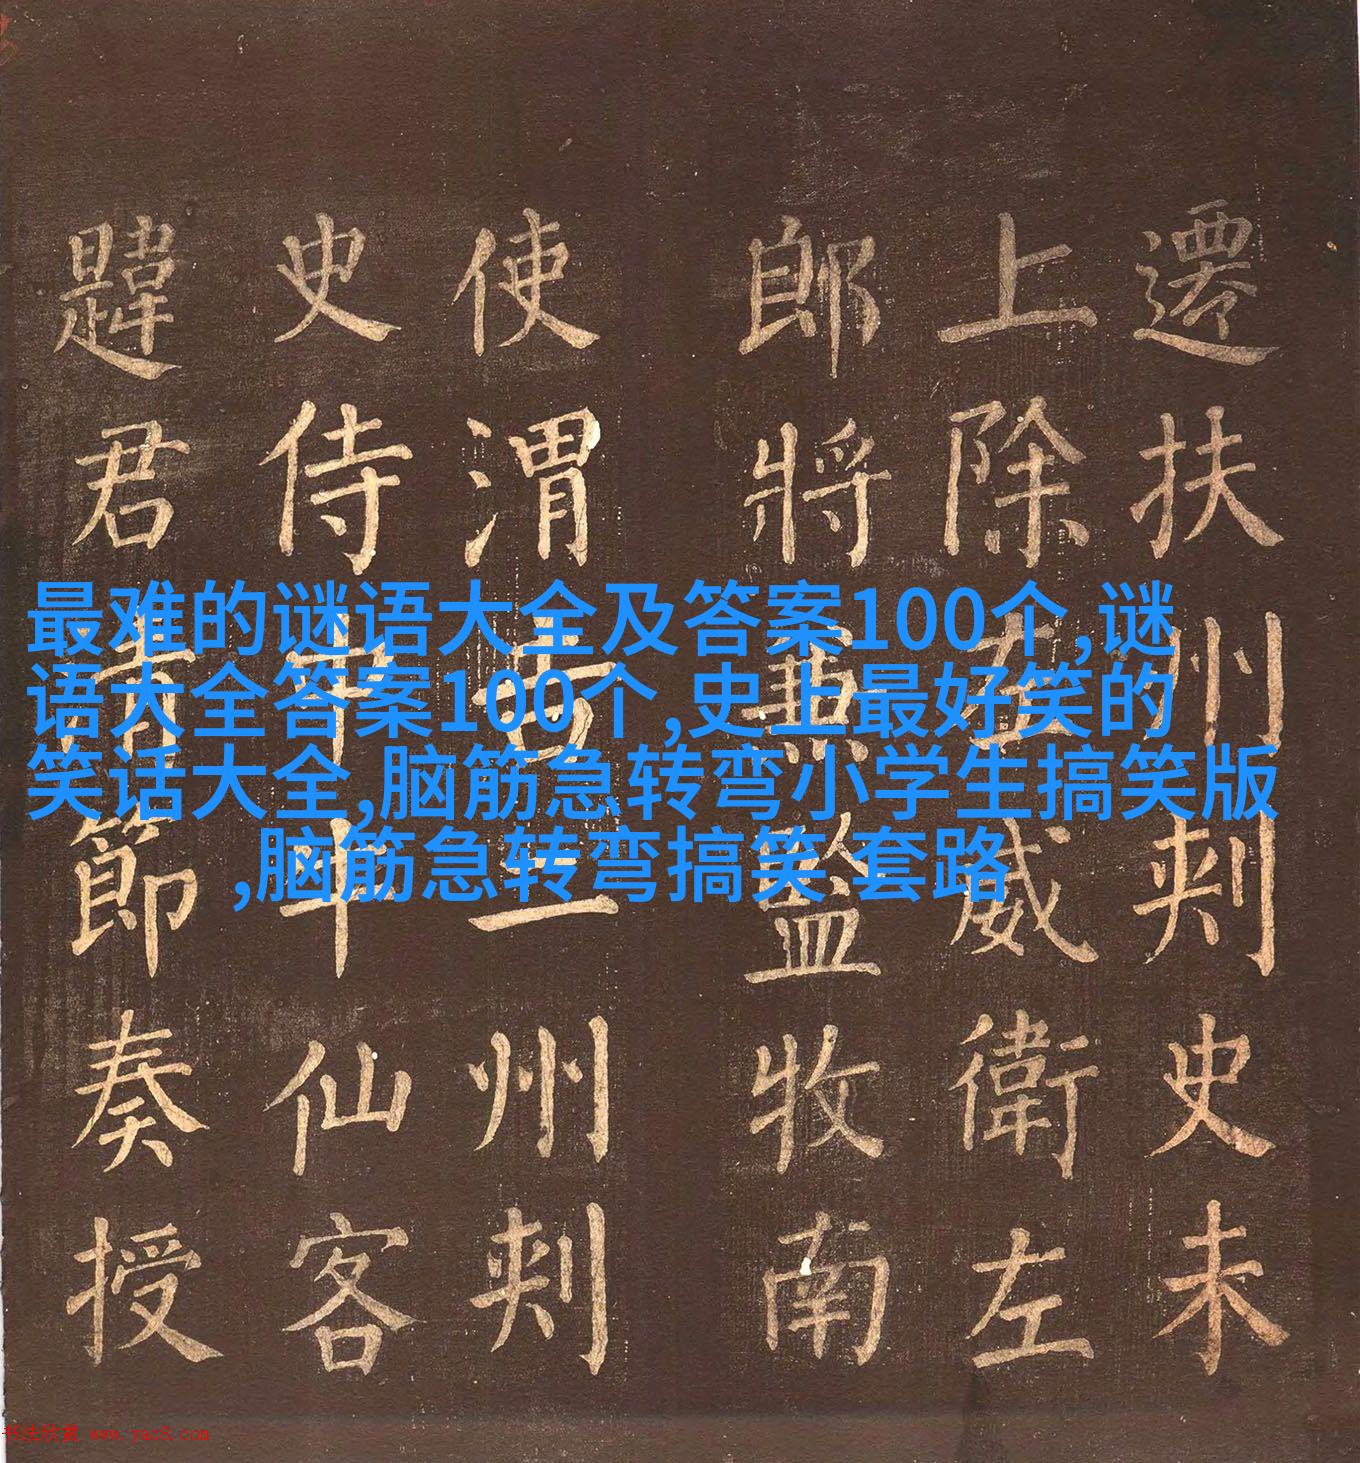 最难的谜语大全及答案100个,谜
语大全答案100个,史上最好笑的
笑话大全,脑筋急转弯小学生搞笑版
,脑筋急转弯搞笑 套路
遷扶州刺史未
上除左威衛左
郎將兼監牧南
使渭二州刺
史侍中牛仙客
韙君清節奏授
书法欣赏 www.yac8.com